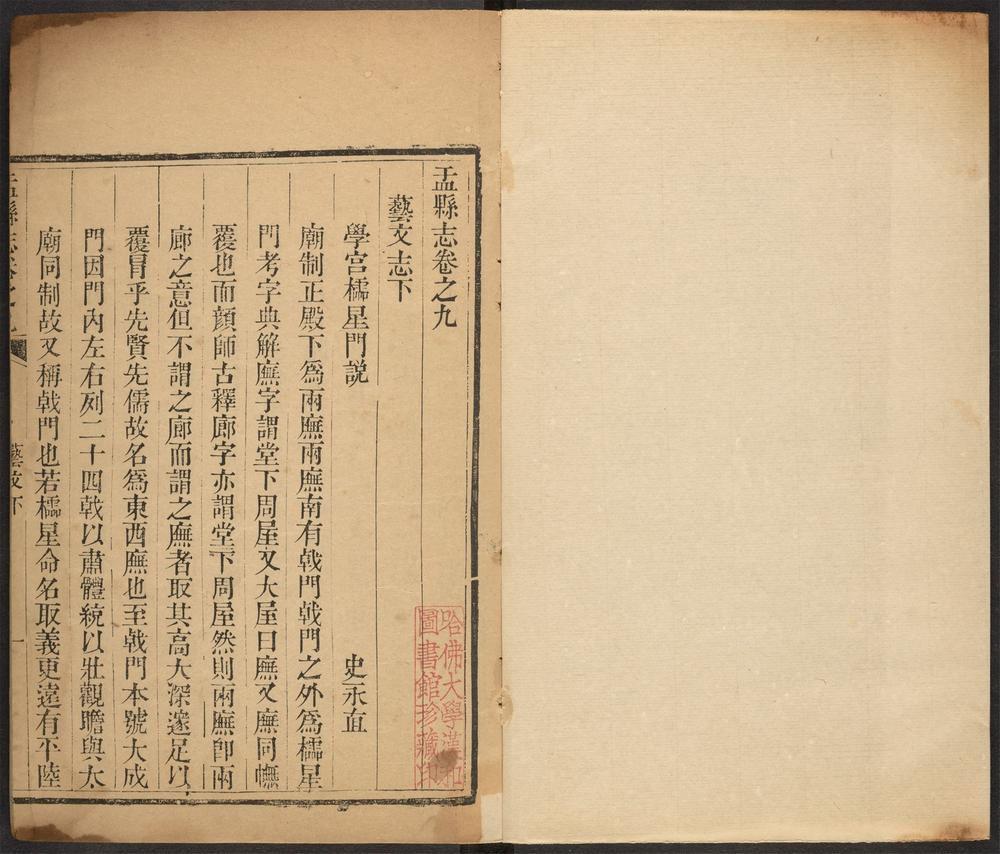 盂縣志卷之九
藝文志下
學宫櫺星門説
史永直
廟制正殿下爲兩廡兩廡南有㦸門㦸門之外爲櫺星
門考字典解廡字謂堂下周屋又大屋曰廡又廡同幠
覆也而顔師古釋廊字亦謂堂下周屋然則兩廡卽兩
廊之意但不謂之廊而謂之廡者取其高大深邃足以
覆冒乎先賢先儒故名爲東西廡也至㦸門本號大成
門因門內左右列二十四㦸以肅體統以壯觀瞻與太
廟同制故又稱㦸門也若櫺星命名取義更遠有平陸
盂縣志卷之九
藝文下
一
哈佛大學漢和
圖書館珍藏印